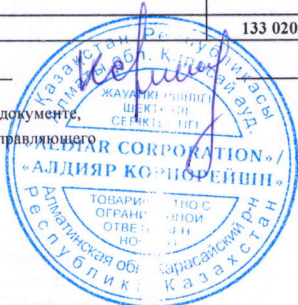 133 020
документе,
правляющего
Казахстан Республикасы
Алматы обл. Қарасай ауд
ЖАУАПКЕРШІЛІГІ
ШЕКТЕУЛІ
СЕРІКТЕСТІГІ
«ALDIYAR CORPORATION»/
«АЛДИЯР КОРПОРЕЙШН»
ТОВАРИЩЕСТВО С
ОГРАНИЧЕННОЙ
ОТВЕТСТВЕН
НОСТЬЮ
Алматинская обл Карасайский р-н
Республика Казахстан